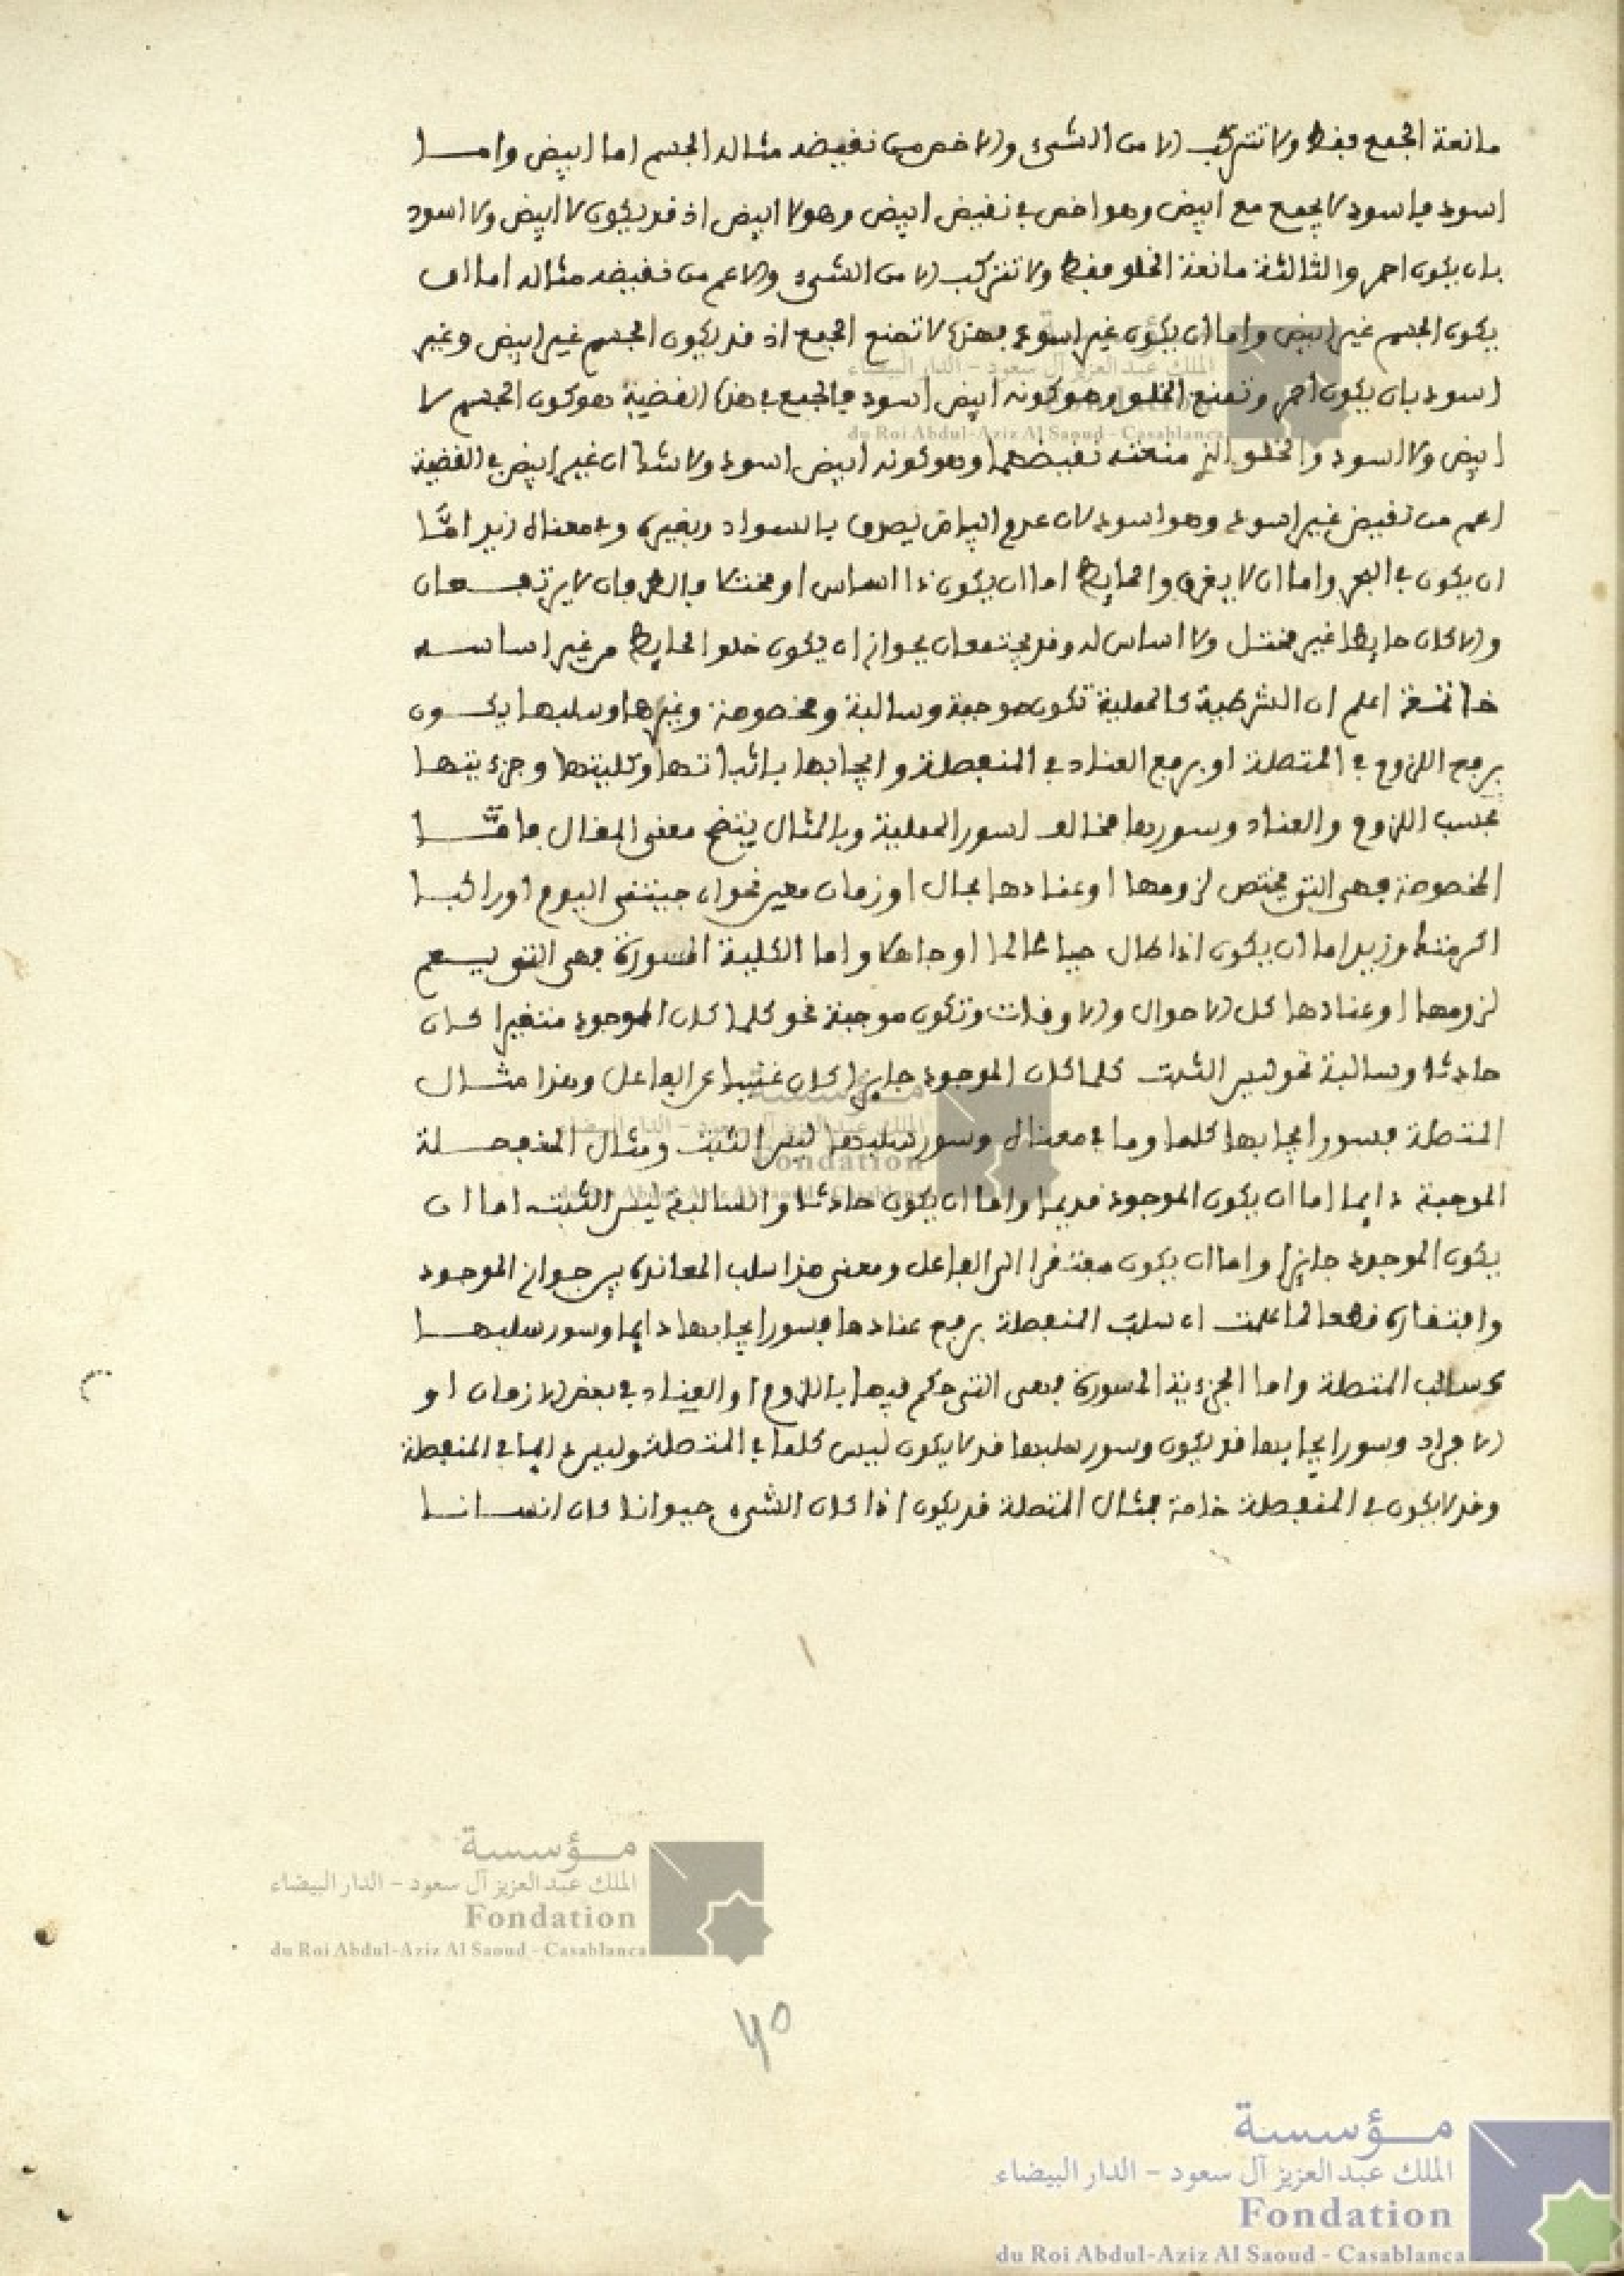 مانعة الجمع فقط ولا تتركب الا من الشيء والاخص من نقيضه مثاله الجسم اما ابيض واما
اسود فاسود لا يجمع مع ابيض وهو اخص في نقيض ابيض وهو لا ابيض اذ قد يكون لا ابيض ولا اسود
بان يكون احمر والثالثة مانعة الخلو فقط ولا تتركب الا من الشيء والاعم من نقيضه مثاله اما ان
يكون الجسم غير ابيض واما ان يكون غير اسود فهذه لا تمنع الجمع اذ قد يكون الجسم غير ابيض وغير
اسود بان يكون احمر وتمنع الخلو وهو كونه ابيض اسود فالجمع في هذه القضية هو كون الجسم لا
ابيض ولا اسود والخلو الذي منعته نقيضهما وهو كونه ابيض اسود ولا شك ان غير ابيض في القضية
اعم من نقيض غير اسود وهو اسود لان عدم البياض يصدق بالسواد وبغيره وفي معناه زيد امّا
ان يكون في البحر واما ان لا يغرق والحايط اما ان يكون ذا اساس او مختلا فالطرفان لا يرتفعان
والا كان حايطا غير مختل ولا اساس له وقد يجتمعان بجواز ان يكون خلو الحايط من غير اساسه
خاتمة اعلم ان الشرطية كالحملية تكون موجبة وسالبة ومخصوصة وغيرها وسلبها يكون
برفع اللزوم في المتصلة او برفع العناد في المنفصلة وايجابها باثباتها وكليتها وجزءيتها
بحسب اللزوم والعناد وسورها مخالف لسور الحملية وبالمثال يتضح معنى المقال فامّا
المخصوصة فهي التي يختص لزومها او عنادها بحال او زمان معين نحو ان جيتني اليوم او راكبا
اكرمتك وزيد اما ان يكون اذا كان حيا عالما او جاهلا واما الكلية المسورة فهي التي يعم
لزومها او عنادها كل الاحوال والاوقات وتكون موجبة نحو كلما كان الموجود متغيرا كان
حادثا وسالبة نحو ليس البتة كلما كان الموجود جايزا كان غنيا عن الفاعل وهذا مثال
المتصلة فسور ايجابها كلما وما في معناه وسور سلبها ليس البتة ومثال المنفصلة
الموجبة دايما اما ان يكون الموجود قديما واما ان يكون حادثا والسالبة ليس البتة اما ان
يكون الموجود جايزا واما ان يكون مفتقرا الى الفاعل ومعنى هذا سلب المعاندة بين جواز الموجود
وافتقاره قطعا لما علمت ان سلب المنفصلة برفع عنادها فسور ايجابها دايما وسور سلبها
كسالب المتصلة واما الجزءية المسورة فهي التي حكم فيها باللزوم او العناد في بعض الازمان او
الافراد وسور ايجابها قد يكون وسور سلبها قد لا يكون ليس كلما في المتصلة وليس دايما في المنفصلة
وقد لا يكون في المنفصلة خاصة فمثال المتصلة قد يكون اذا كان الشيء حيوانا كان انسانا
مؤسسة
الملك عبد العزيز آل سعود - الدار البيضاء
Fondation
du Roi Abdul-Aziz Al Saoud - Casablanca
مؤسسة
الملك عبد العزيز آل سعود - الدار البيضاء
Fondation
du Roi Abdul-Aziz Al Saoud - Casablanca